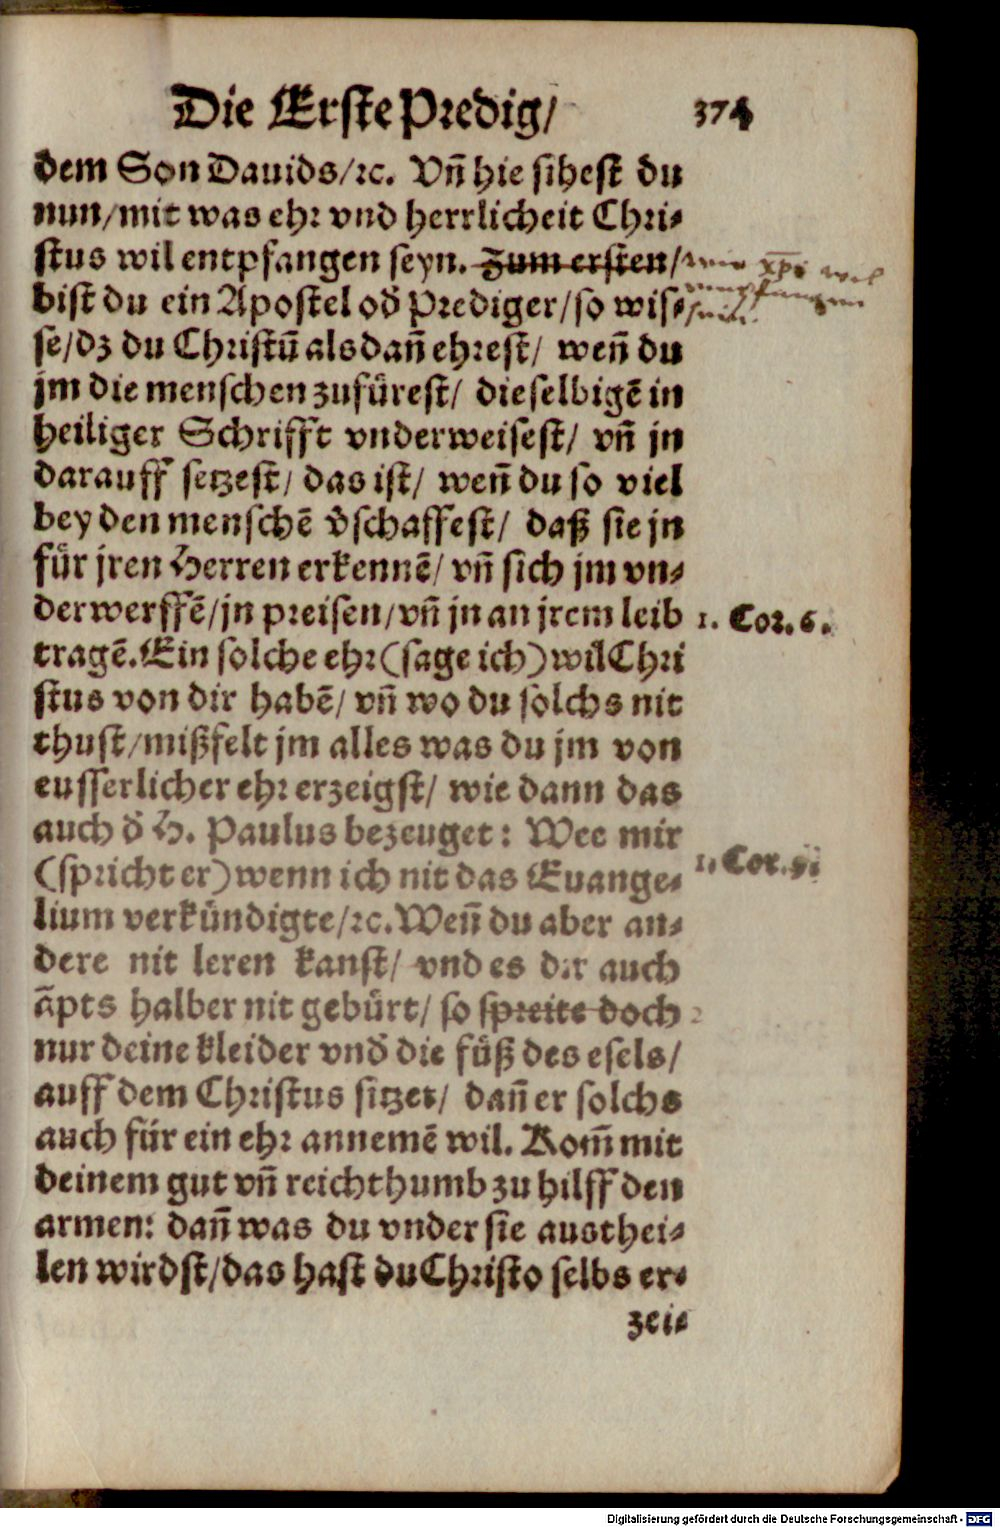 Die Erste Predig/ 374
dem Son Dauids/ꝛc. Vñ hie sihest du
nun/mit was ehr vnd herrlicheit Chri-
stus wil entpfangen seyn. Zum ersten/
bist du ein Apostel od̃ Prediger/so wis-
se/dz du Christũ alsdañ ehrest/ weñ du
jm die menschen zufürest/ dieselbigẽ in
heiliger Schrifft vnderweisest/ vñ jn
darauff setzest/ das ist/ weñ du so viel
bey den menschẽ v̈schaffest/ daß sie jn
für jren Herren erkennẽ/ vñ sich jm vn-
derwerffẽ/jn preisen/vñ jn an jrem leib
1. Cor. 6.
tragẽ. Ein solche ehr (sage ich) wil Chri
stus von dir habẽ/ vñ wo du solchs nit
thust/mißfelt jm alles was du jm von
eusserlicher ehr erzeigst/ wie dann das
auch d̃ H. Paulus bezeuget: Wee mir
(spricht er) wenn ich nit das Euange-
1. Cor. 9.
lium verkündigte/ꝛc. Weñ du aber an-
dere nit leren kanst/ vnd es dir auch
ãpts halber nit gebürt/ so spreite doch
nur deine kleider vnd̃ die füß des esels/
auff dem Christus sitzet/ dañ er solchs
auch für ein ehr annemẽ wil. Kom̃ mit
deinem gut vñ reichthumb zu hilff den
armen: dañ was du vnder sie austhei-
len wirdst/das hast du Christo selbs er-
zei-
Digitalisierung gefördert durch die Deutsche Forschungsgemeinschaft - DFG